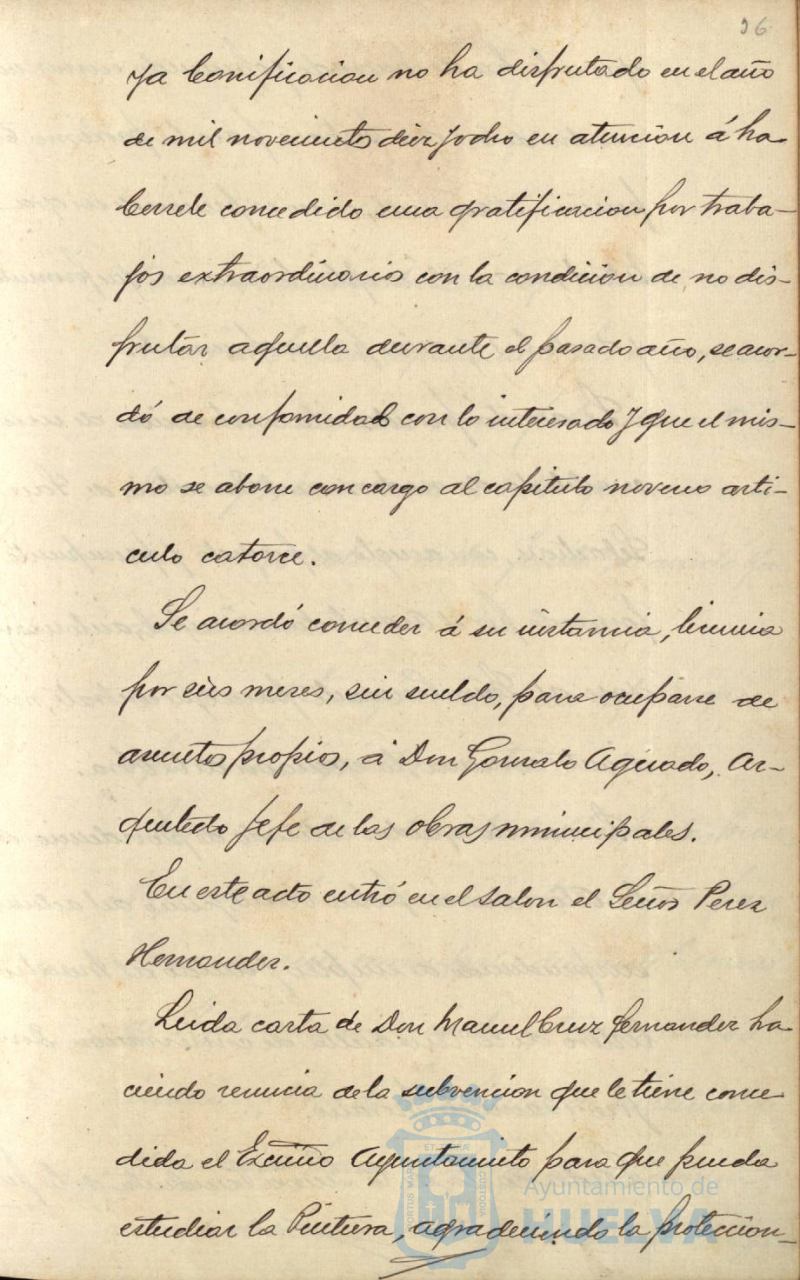 96
ya bonificacion no ha disfrutado en el año
de mil novecientos diez y ocho en atencion á ha
bersele concedido una gratificacion por traba-
jos extraordinarios con la condicion de no dis-
frutar aquella durante el pasado año, se acor-
dó de conformidad con lo interesado y que el mis-
mo se abone con cargo al capitulo noveno arti-
culo catorce.
Se acordó conceder á su instancia, licencia
por seis meses, sin sueldo, para ocuparse de
asuntos propios, á Don Gonzalo Aguado, Ar-
quitecto Jefe de las obras municipales.
En este acto entró en el salon el Señor Perez
Hernandez.
Leida carta de Don Manuel Cruz Fernandez ha
ciendo renuncia de la subvencion que le tiene conce
dida el Excmo Ayuntamiento para que pueda
estudiar la Pintura, agradeciendo la proteccion
Ayuntamiento de
HUELVA